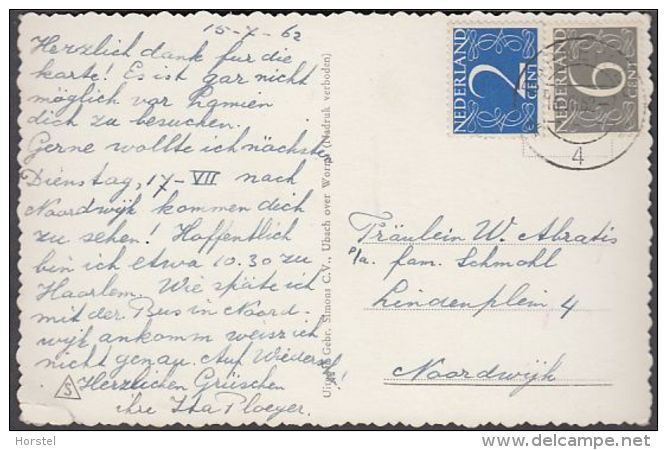 15-7-62
Herzlich dank fur die
karte! Es ist gar nicht
möglich vor
dich zu besuchen.
Gerne wollte ich nächsten
Dienstag, 17-VII nach
Noordwijk kommen dich
zu sehen! Hoffentlich
bin ich etwa 10.30 zu
Haarlem. Wie späte ich
mit der Bus in Noord-
wijk ankomm weisz ich
nicht genau. Auf Wiederseh!
Herzlichen Grüschen
ihre Ita Ploeger.
S
Uitg. Gebr. Simons C.V., Ubach over Worms (Nadruk verboden)
NEDERLAND
2
CENT
NEDERLAND
6
CENT
4
Fräulein W. Abratis
p/a. fam. Schmohl
Lindenplein 4
Noordwijk
Horstel
www.delcampe.net